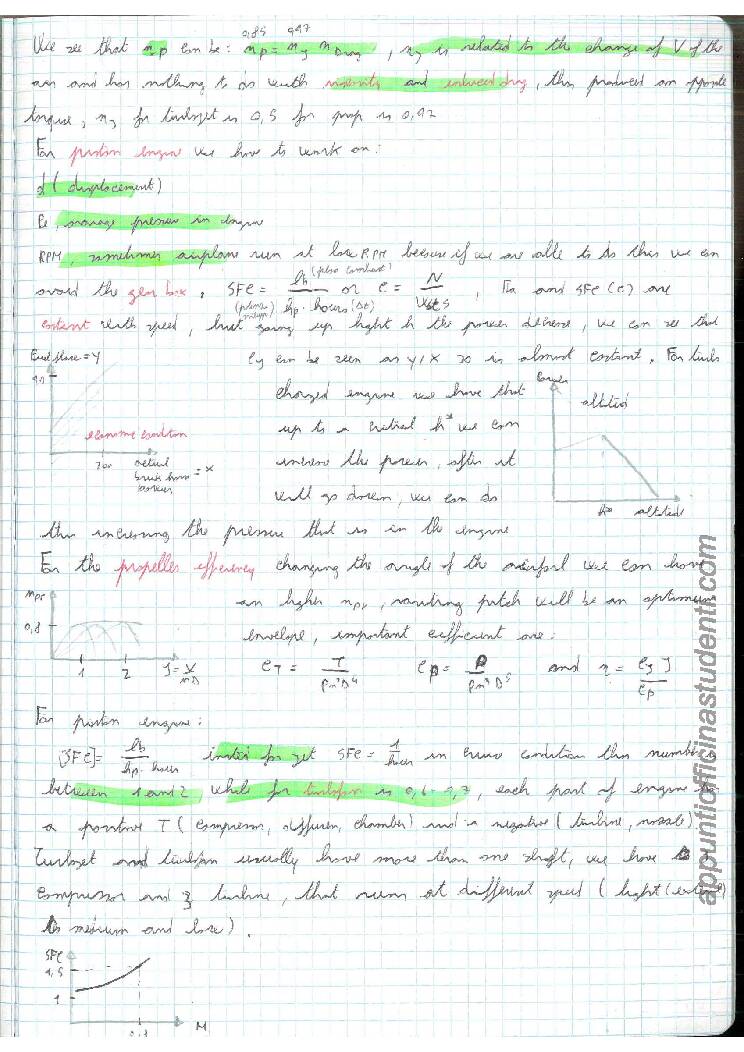 0,85 0,97
We see that ηp can be: ηp = ηj ηDrag, ηj is related to the change of V of the
air and has nothing to do with viscosity and induced drag, this produced an opposite
torque, ηj for turbojet is 0,5 for prop is 0,97
For piston engine we have to work on:
d (displacement)
Pe, manage pressure in engine
RPM, sometimes airplane run at low RPM because if we are able to do this we can
avoid the gear box. SFC = lb / hp · hours (Δt) or c = N / W s, Pa and SFC (c) are
costant with speed, but going up hight h the power decrese, we can see that
= Y can be seen as Y/X so is almost costant. For turbo
charged engine we have that
up to a critical h* we can
increse the power, after it
will go down, we can do
economic condition
actual
brake horse = X
power
Power
altitud
h* altitud
this incresing the pressure that is in the engine
For the propeller efficiency changing the angle of the airfoil we can have
an higher ηpr, variting pitch will be an optimum
envelope, important coefficient are:
ηpr
0,8
1 2 J = V/nD
CT = T / ρn²D⁴ CP = P / ρn³D⁵ and η = CT J / CP
For piston engine:
[SFC] = lb / hp · hours insted for jet SFC = 1/hour in cruise condition this number is
between 1 and 2, while for turbofan is 0,6 - 0,7, each part of engine has
a positive T (compressor, diffuser, chamber) and a negative (turbine, nozzle).
Turbojet and turbofan usually have more than one shaft, we have 3
compressor and 3 turbine, that runs at different speed (hight (external)
to medium and low).
SFC
1,5
1
0,8 M
appuntiofficinastudenti.com